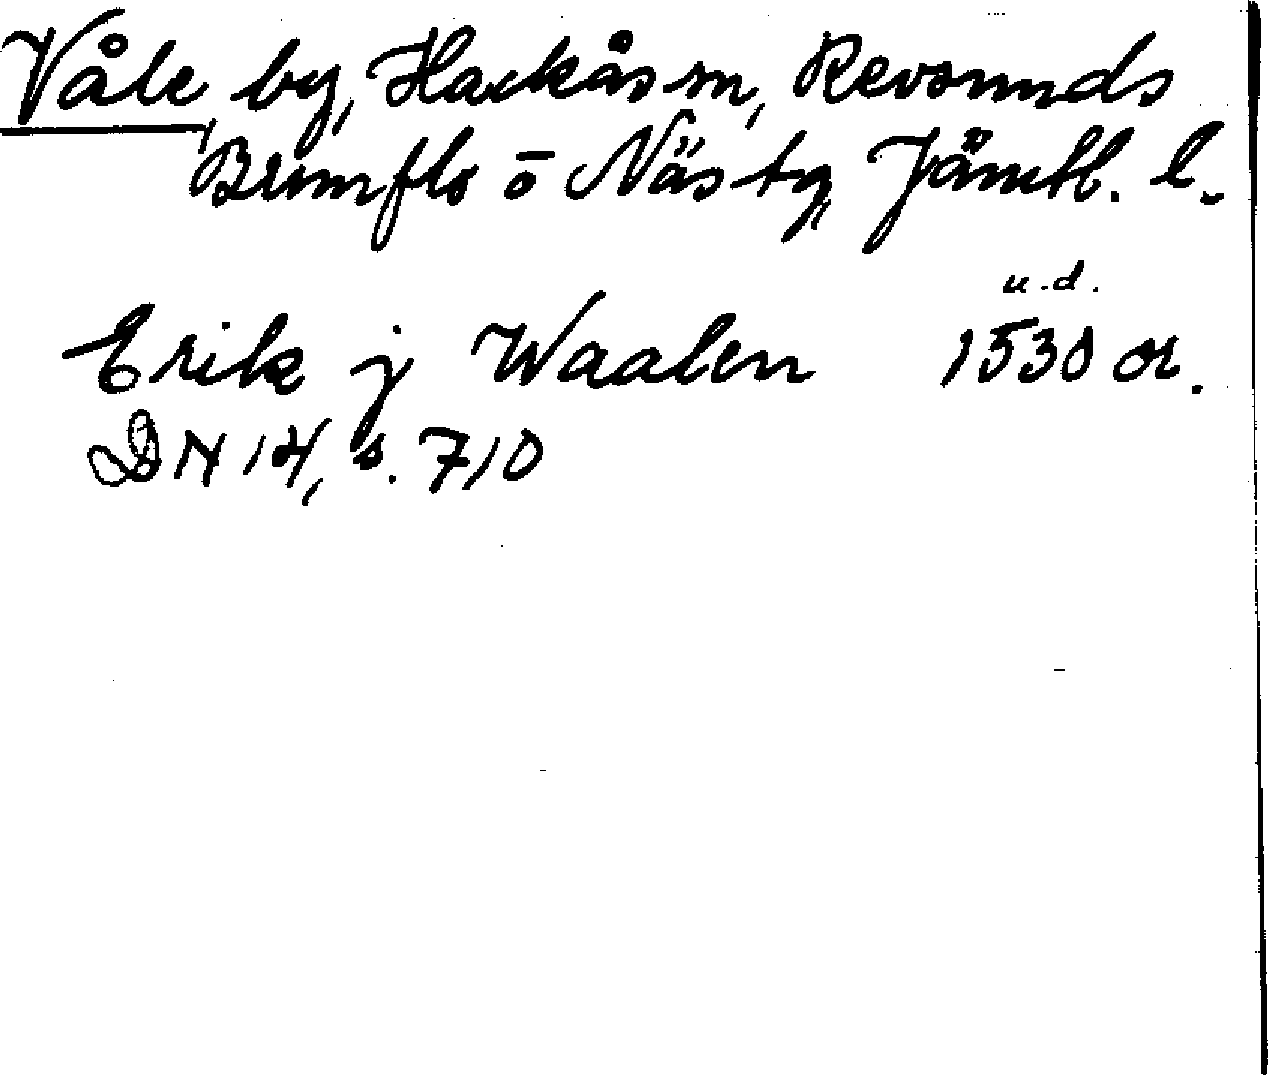 Våle, by, Hackås sn, Revsunds
Brunflo o Näs tg, Jämtl. l.
u.d.
Erik j Waalen 1530 or.
DN 14, s. 710